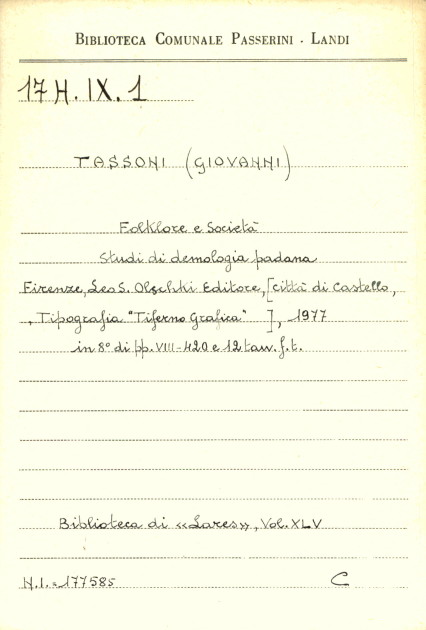 BIBLIOTECA COMUNALE PASSERINI - LANDI
17 H. IX. 1
TASSONI (GIOVANNI)
Folklore e Società
Studi di demologia padana
Firenze, Leo S. Olschki Editore, [Città di Castello,
, Tipografia "Tiferno Grafica" ], 1977
in 8° di pp. VIII-420 e 12 tavv. f. t.
Biblioteca di «Lares», Vol. XLV
N.I. = 177585 C